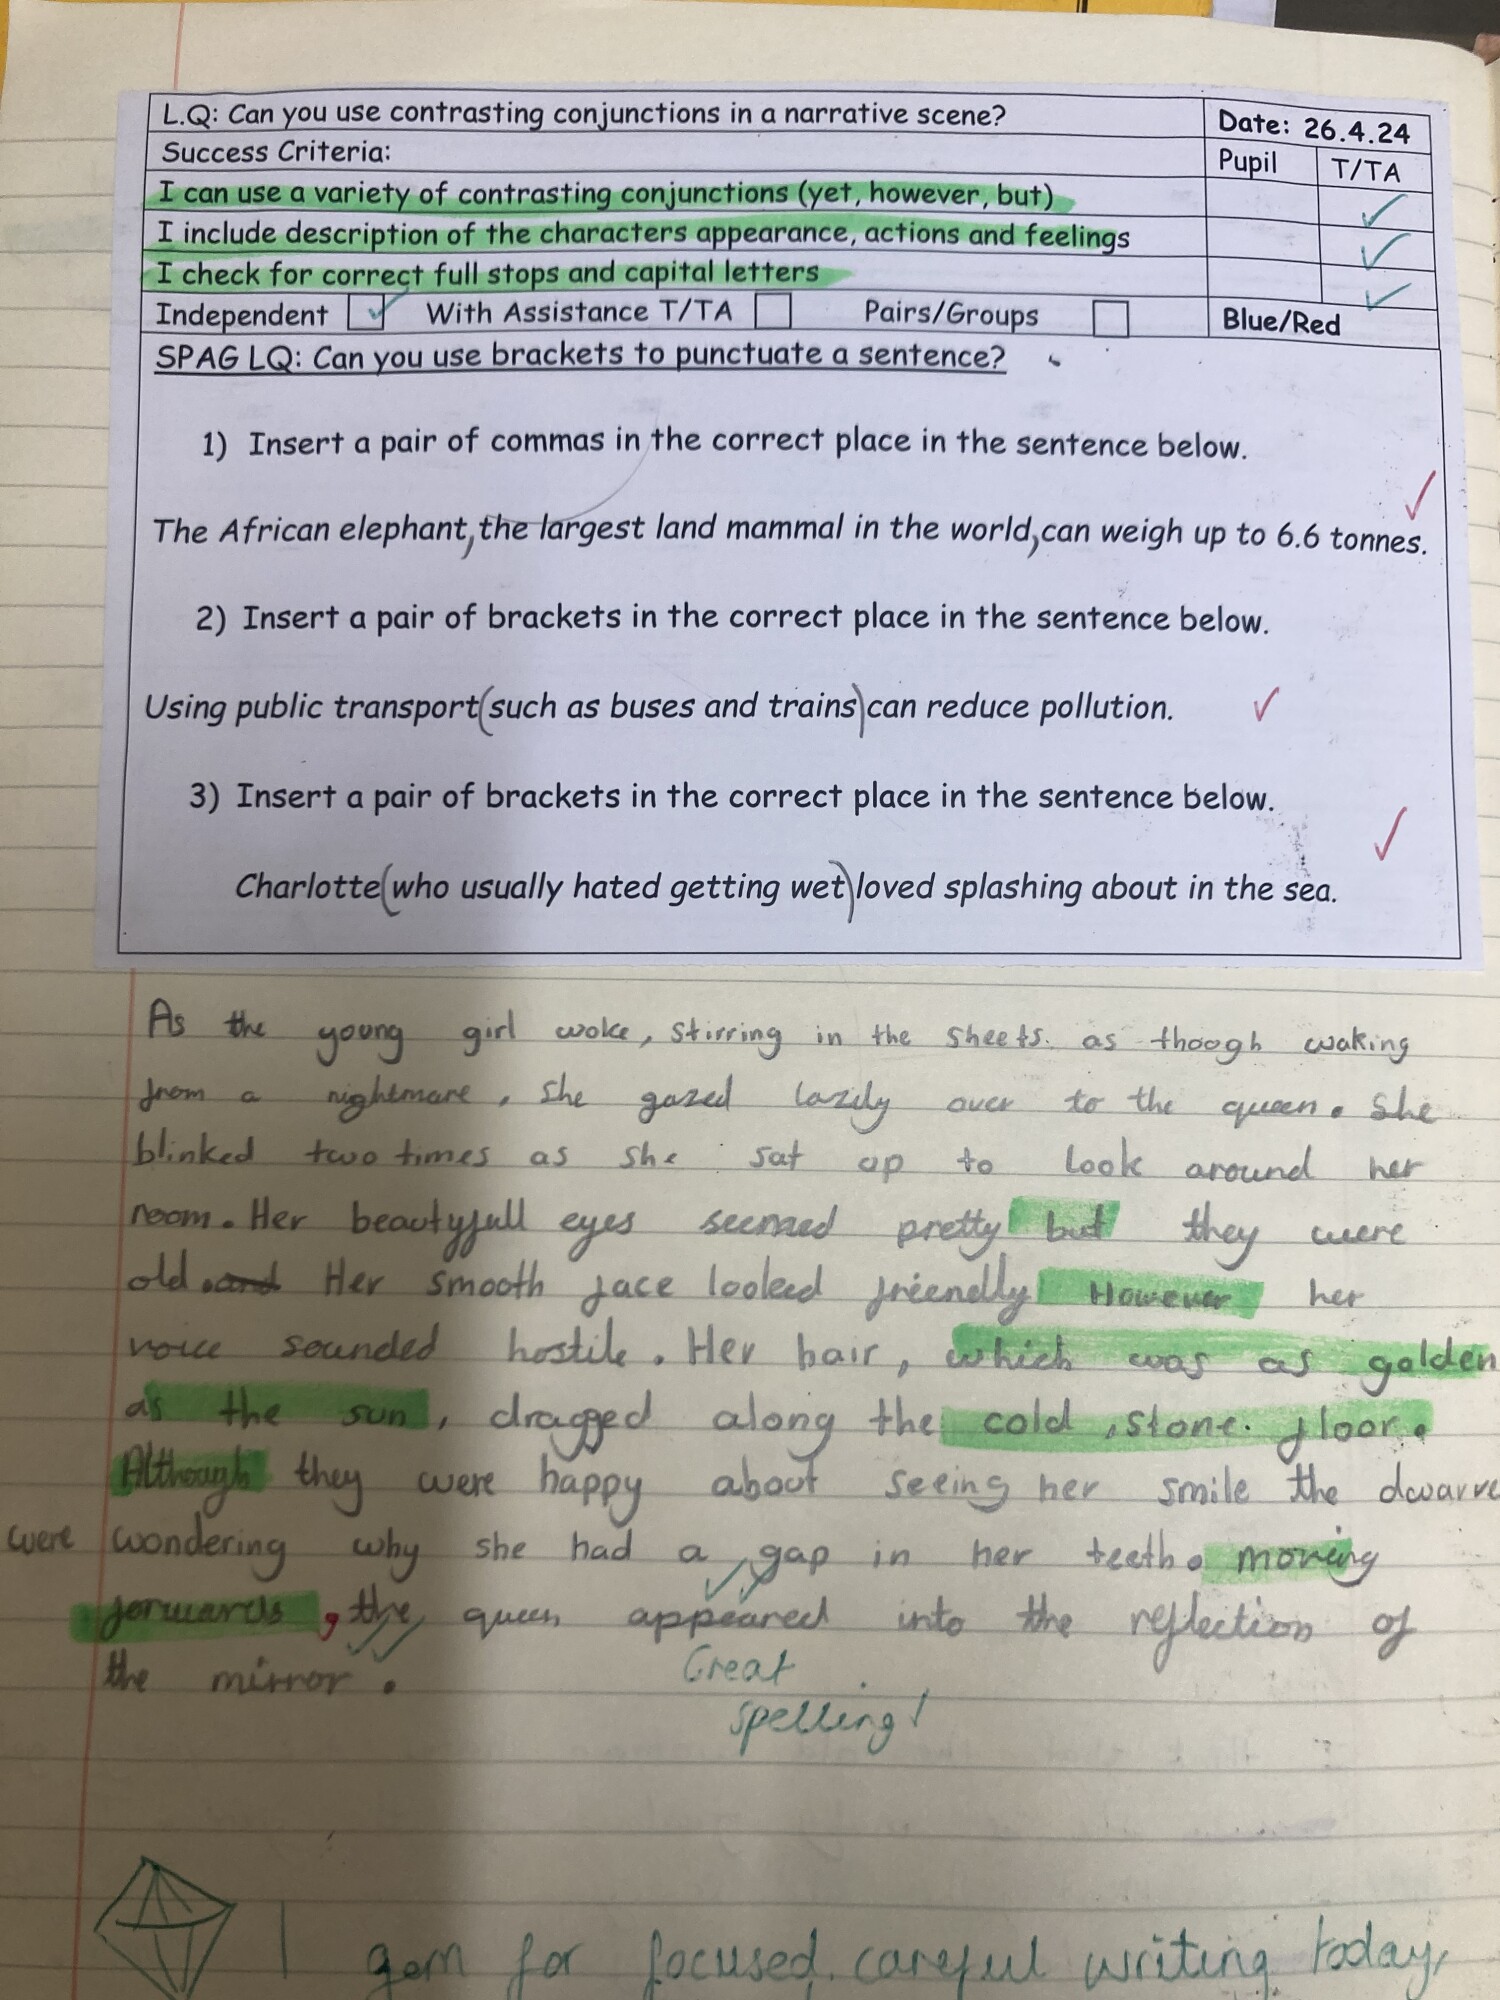 L.Q: Can you use contrasting conjunctions in a narrative scene?
Date: 26.4.24
Success Criteria:
Pupil T/TA
I can use a variety of contrasting conjunctions (yet, however, but)
I include description of the characters appearance, actions and feelings
I check for correct full stops and capital letters
Independent With Assistance T/TA Pairs/Groups Blue/Red
SPAG LQ: Can you use brackets to punctuate a sentence?
1) Insert a pair of commas in the correct place in the sentence below.
The African elephant, the largest land mammal in the world, can weigh up to 6.6 tonnes.
2) Insert a pair of brackets in the correct place in the sentence below.
Using public transport (such as buses and trains) can reduce pollution.
3) Insert a pair of brackets in the correct place in the sentence below.
Charlotte (who usually hated getting wet) loved splashing about in the sea.
As the young girl woke, stirring in the sheets. as though waking
from a nightmare, she gazed lazily over to the queen. She
blinked two times as she sat up to look around her
room. Her beautyfull eyes seemed pretty but they were
old. and Her smooth face looked friendly However her
voice sounded hostile. Her hair, which was as golden
as the sun, dragged along the cold, stone. floor.
Although they were happy about seeing her smile the dwarve
were wondering why she had a gap in her teeth. moving
forwards, the queen appeared into the reflection of
the mirror.
Great
spelling!
1 gem for focused, careful writing today,